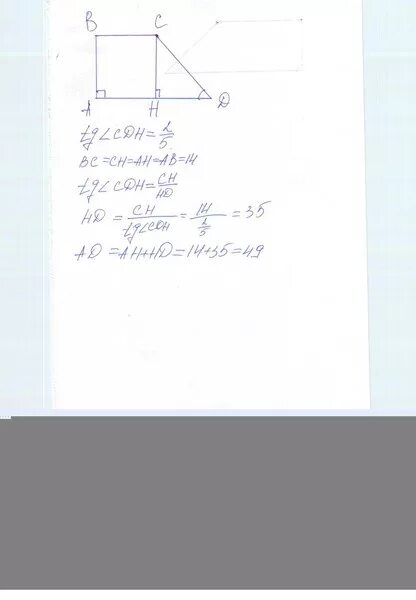 B C
A H D
tg∠CDH = 2/5.
BC = CH = AH = AB = 14
tg∠CDH = CH/HD
HD = CH/tg∠CDH = 14/(2/5) = 35
AD = AH + HD = 14 + 35 = 49